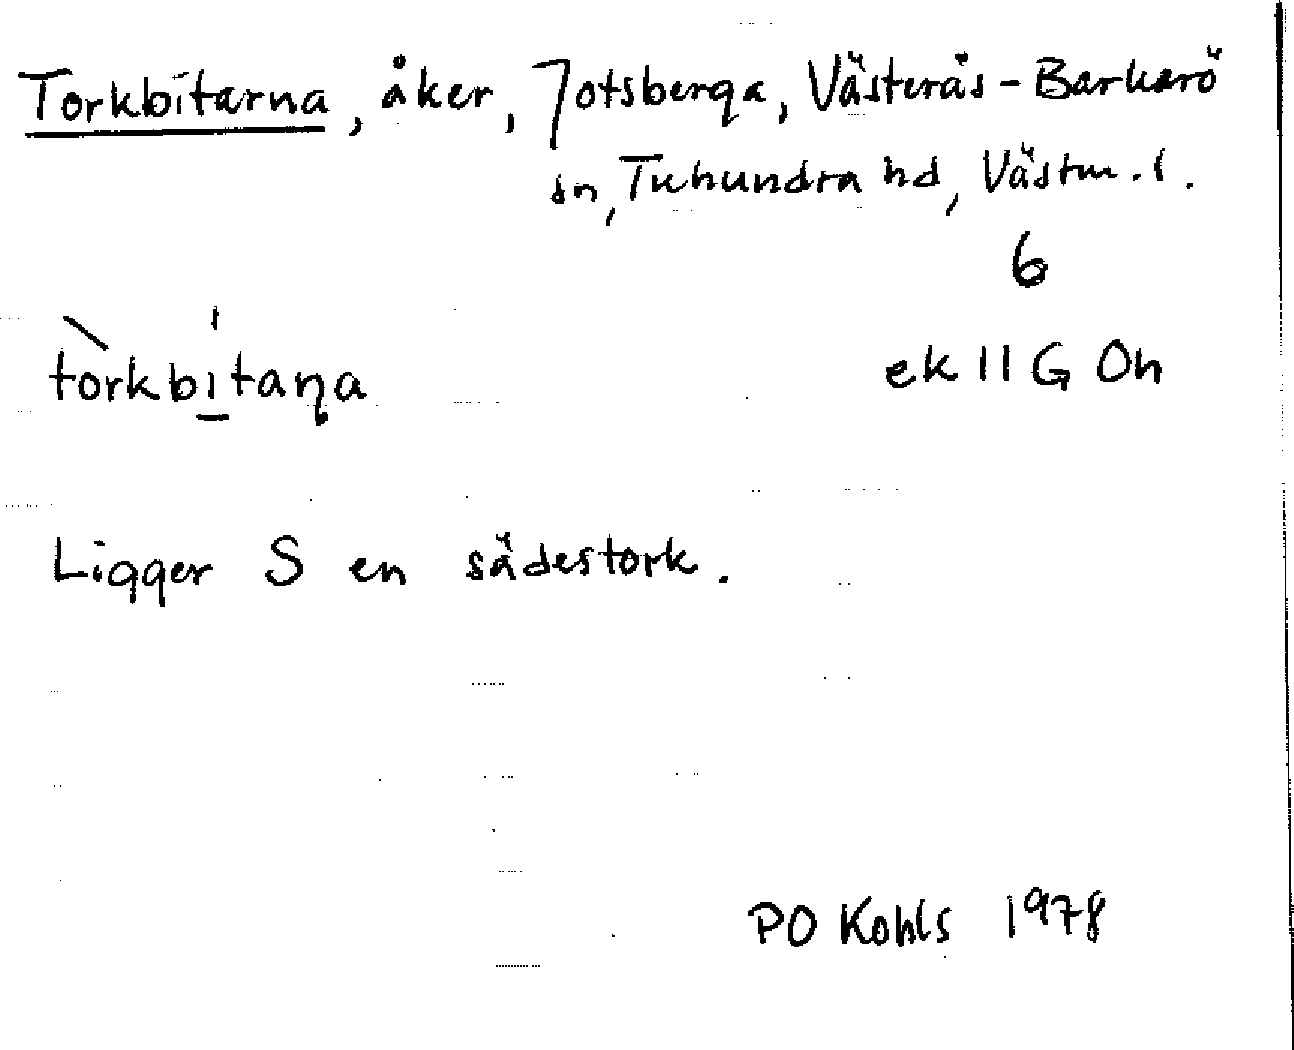 Torkbitarna, åker, Jotsberga, Västerås-Barkarö
sn, Tuhundra hd, Västm. l.
6
tòrkbi̱taṇa
ek 11 G Oh
Ligger S en sädestork.
PO Kohls 1978